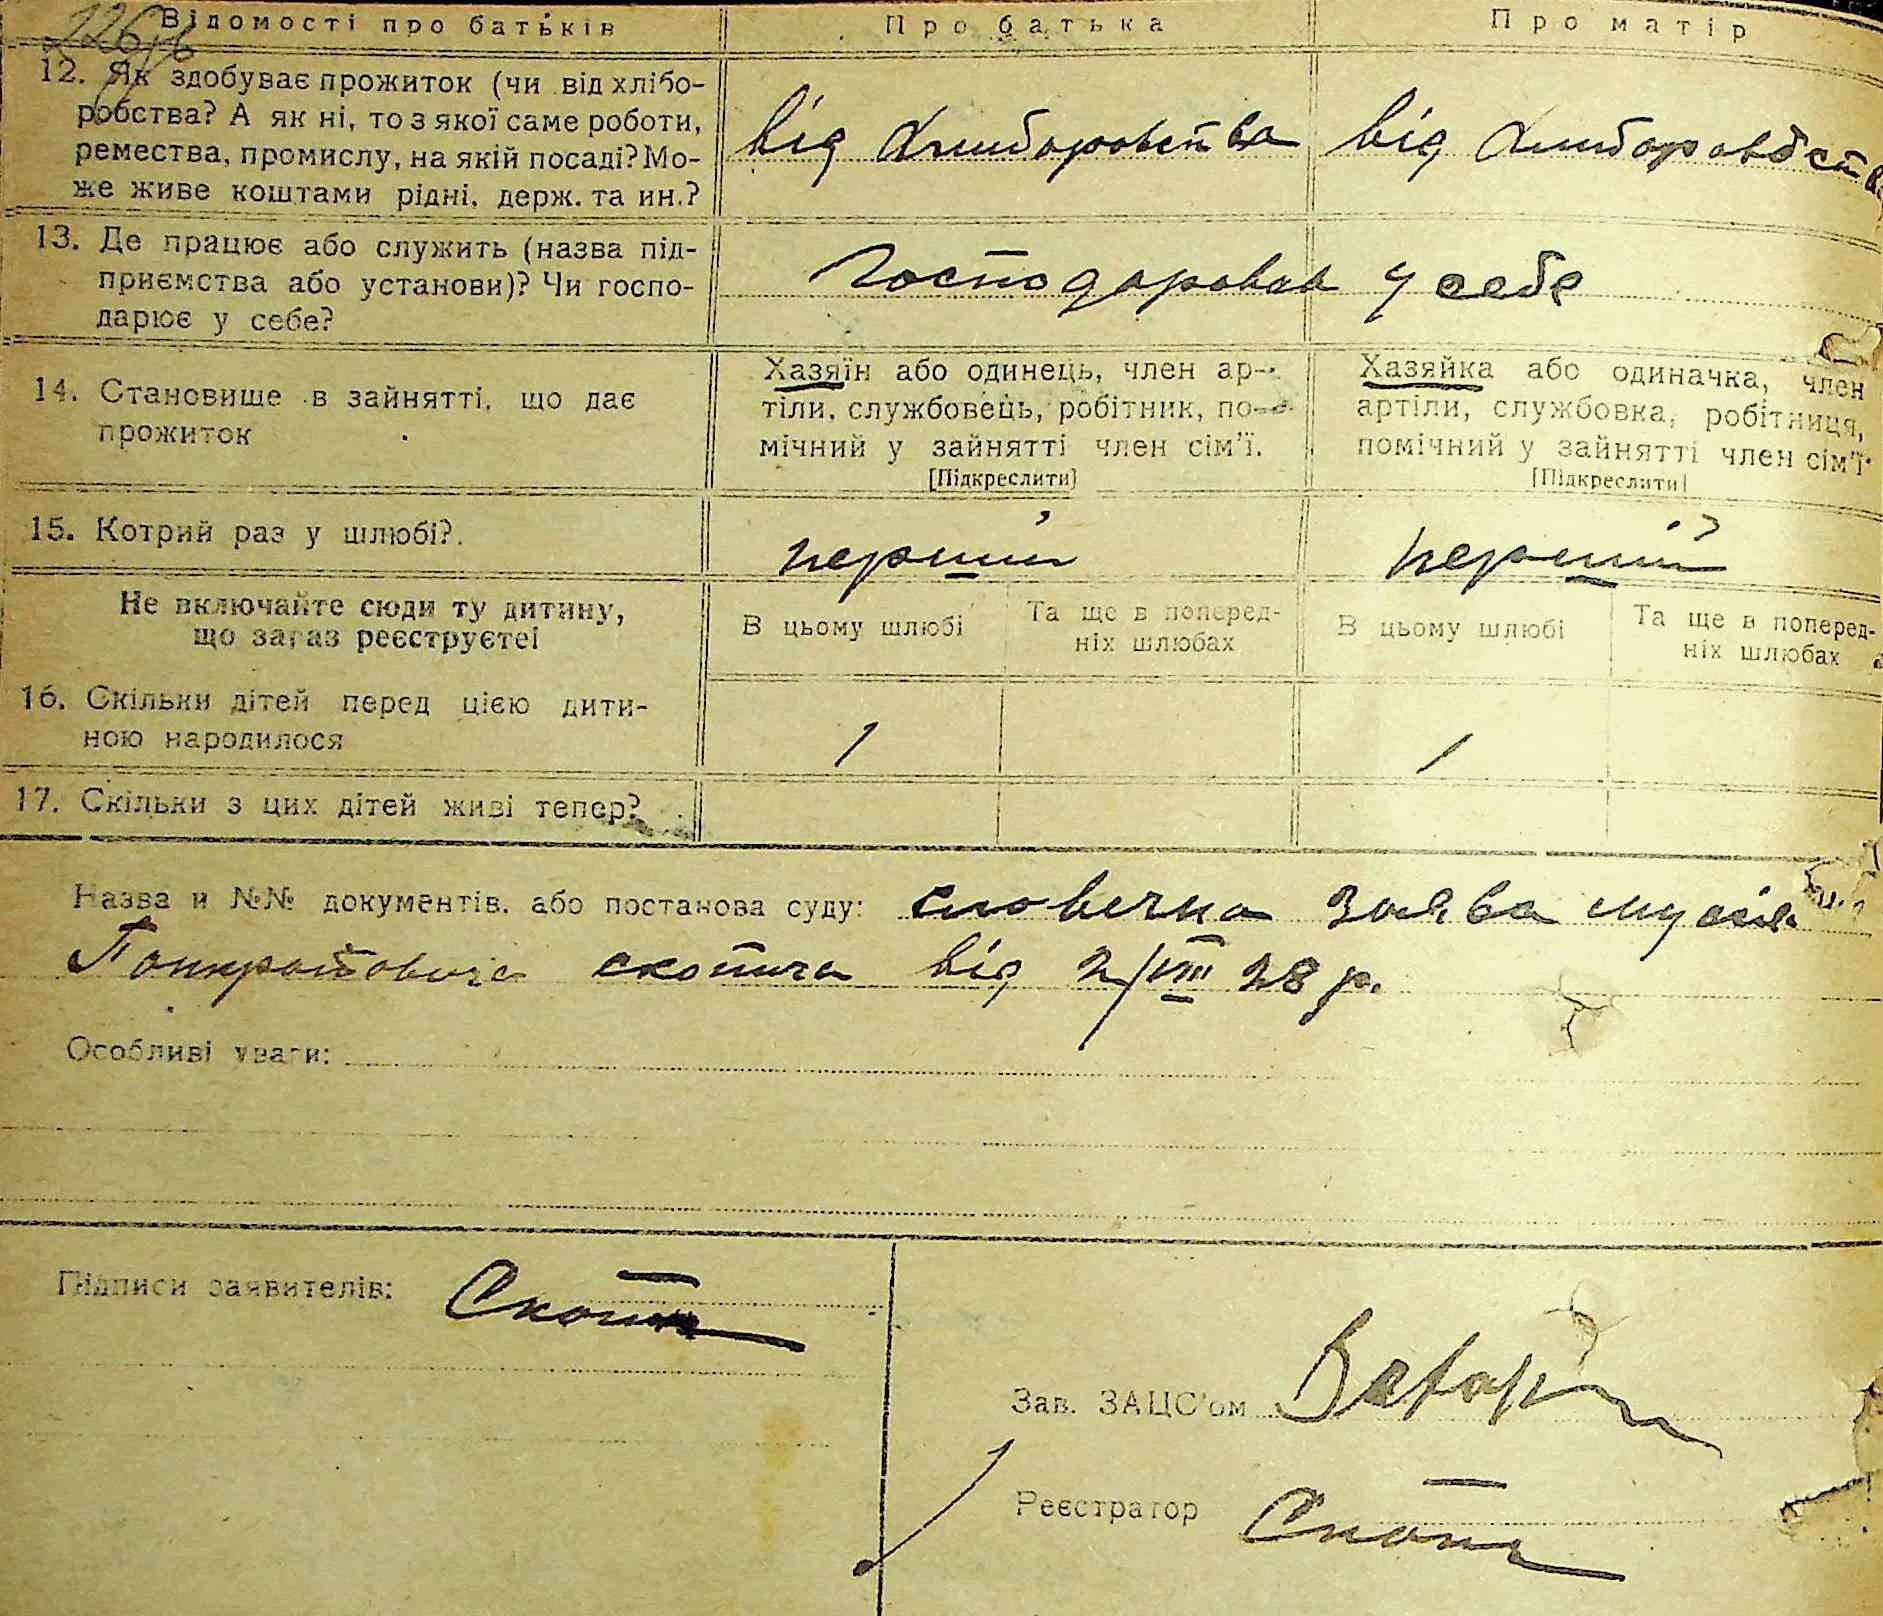 226
Відомості про батьків
Про батька
Про матір
12. Як здобуває прожиток (чи від хлібо-
робства? А як ні, то з якої саме роботи,
ремества, промислу, на якій посаді? Мо-
же живе коштами рідні, держ. та ин.?
від хлиборовства
від хлиборовбств
13. Де працює або служить (назва під-
приємства або установи)? Чи госпо-
дарює у себе?
Господаровав у себе
14. Становище в зайнятті, що дає
прожиток
Хазяїн або одинець, член ар-
тіли, службовець, робітник, по-
мічний у зайнятті член сім'ї.
[Підкреслити]
Хазяйка або одиначка, член
артіли, службовка, робітниця,
помічний у зайнятті член сім'ї
[Підкреслити]
15. Котрий раз у шлюбі?
перший
перший
Не включайте сюди ту дитину,
що зараз реєструєте!
В цьому шлюбі
Та ще в поперед-
ніх шлюбах
В цьому шлюбі
Та ще в поперед-
ніх шлюбах
16. Скільки дітей перед цією дити-
ною народилося
1
1
17. Скільки з цих дітей живі тепер?
Назва и №№ документів, або постанова суду: словечна заява мусія
Панкратовича скотича від 2/VIII 28 р.
Особливі уваги:
Підписи заявителів:
Зав. ЗАЦС'ом
Реєстратор